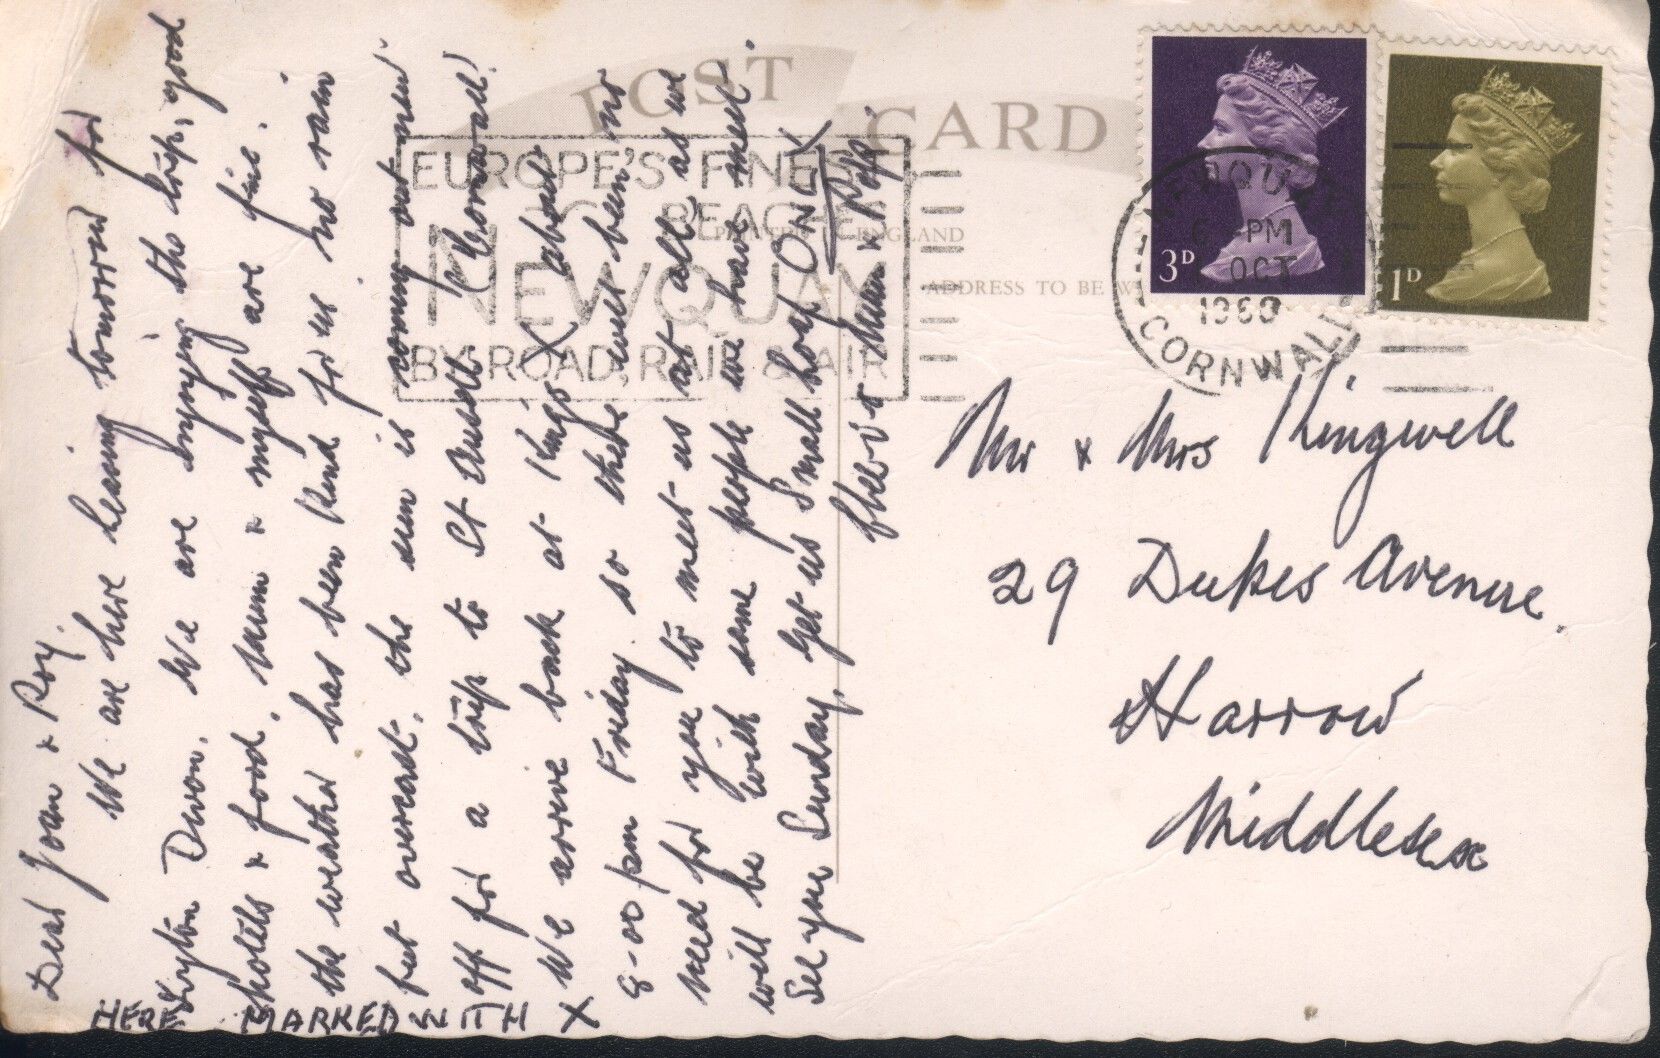 POST CARD
EUROPE'S FINEST
BEACHES
NEWQUAY
BY ROAD, RAIL & AIR
PRINTED ENGLAND
ADDRESS TO BE
3D
1D
NEWQUAY
6 - PM
OCT
CORNWALL
Dear Joan & Roy.
We are here leaving tomorrow for
Lynton Devon. We are enjoying the trip, good
hotels & food, Mum & myself are fine.
the weather has been kind for us no rain
but overcast. the sun is coming out now
off for a trip to St Austell Cornwall!
We arrive back at Kings X about
8-00 pm Friday. so there will been no
need for you to meet us at all as we
will be with some people we have met.
See you Sunday, get us Small hoaf ONLY
Mum & Pop
HERE MARKED WITH X
Mr & Mrs Kingwell
29 Dukes Avenue.
Harrow
Middlesex